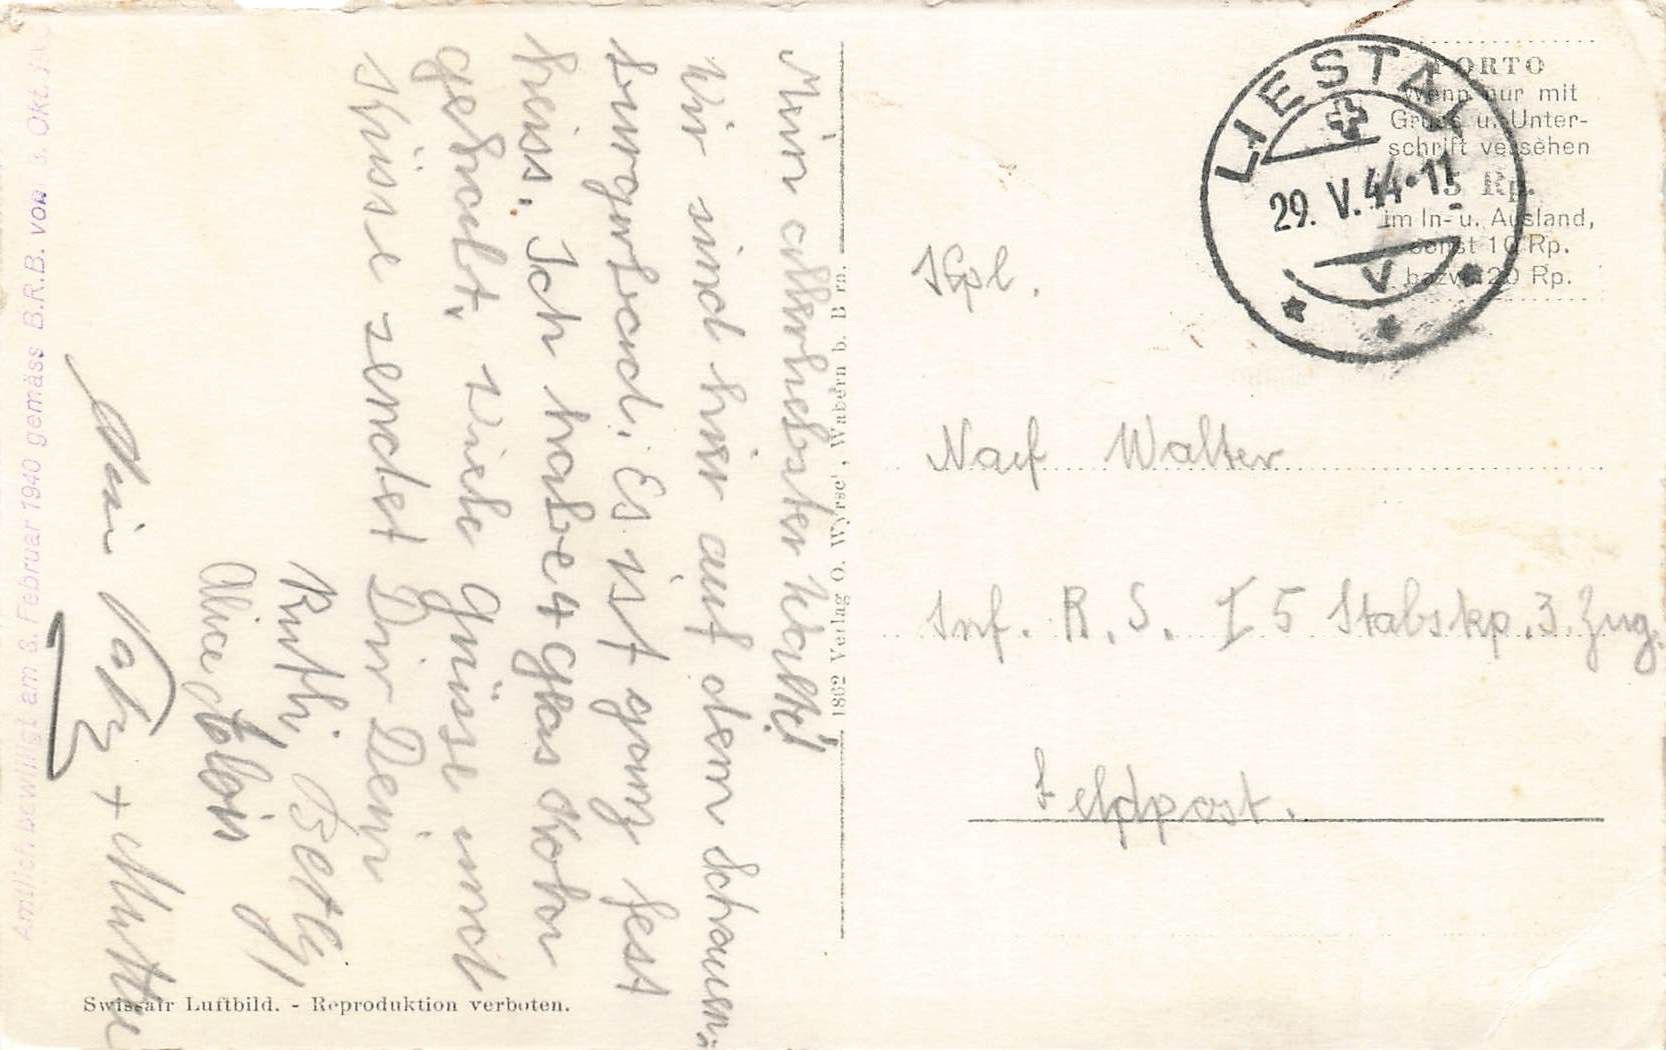 Mein allerliebster Walti!
Wir sind hier auf dem Schauen-
burgerbad. Es ist ganz fest
heiss. Ich habe 4 Glas
gehabt. Viele Grüsse und
Küsse sendet Dir Dein
Ruthi, Betly
Alice
+ Mutter
Amtlich bewilligt am 8. Februar 1940 gemäss B.R.B. von 3. Okt.
Swissair Luftbild. - Reproduktion verboten.
1862 Verlag O. Wyrsch, Wabern b. Bern.
LIESTAL
29. V. 44 - 11
V
PORTO
Wenn nur mit
Gruss u. Unter-
schrift versehen
5 Rp.
im In- u. Ausland,
sonst 10 Rp.
bezw. 20 Rp.
Kpl.
Naef Walter
Inf. R. S. I 5 Stabskp. 3. Zug.
Feldpost.